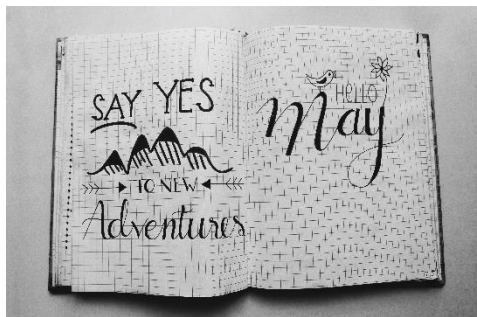 SAY YES
TO NEW
Adventures
HELLO
May